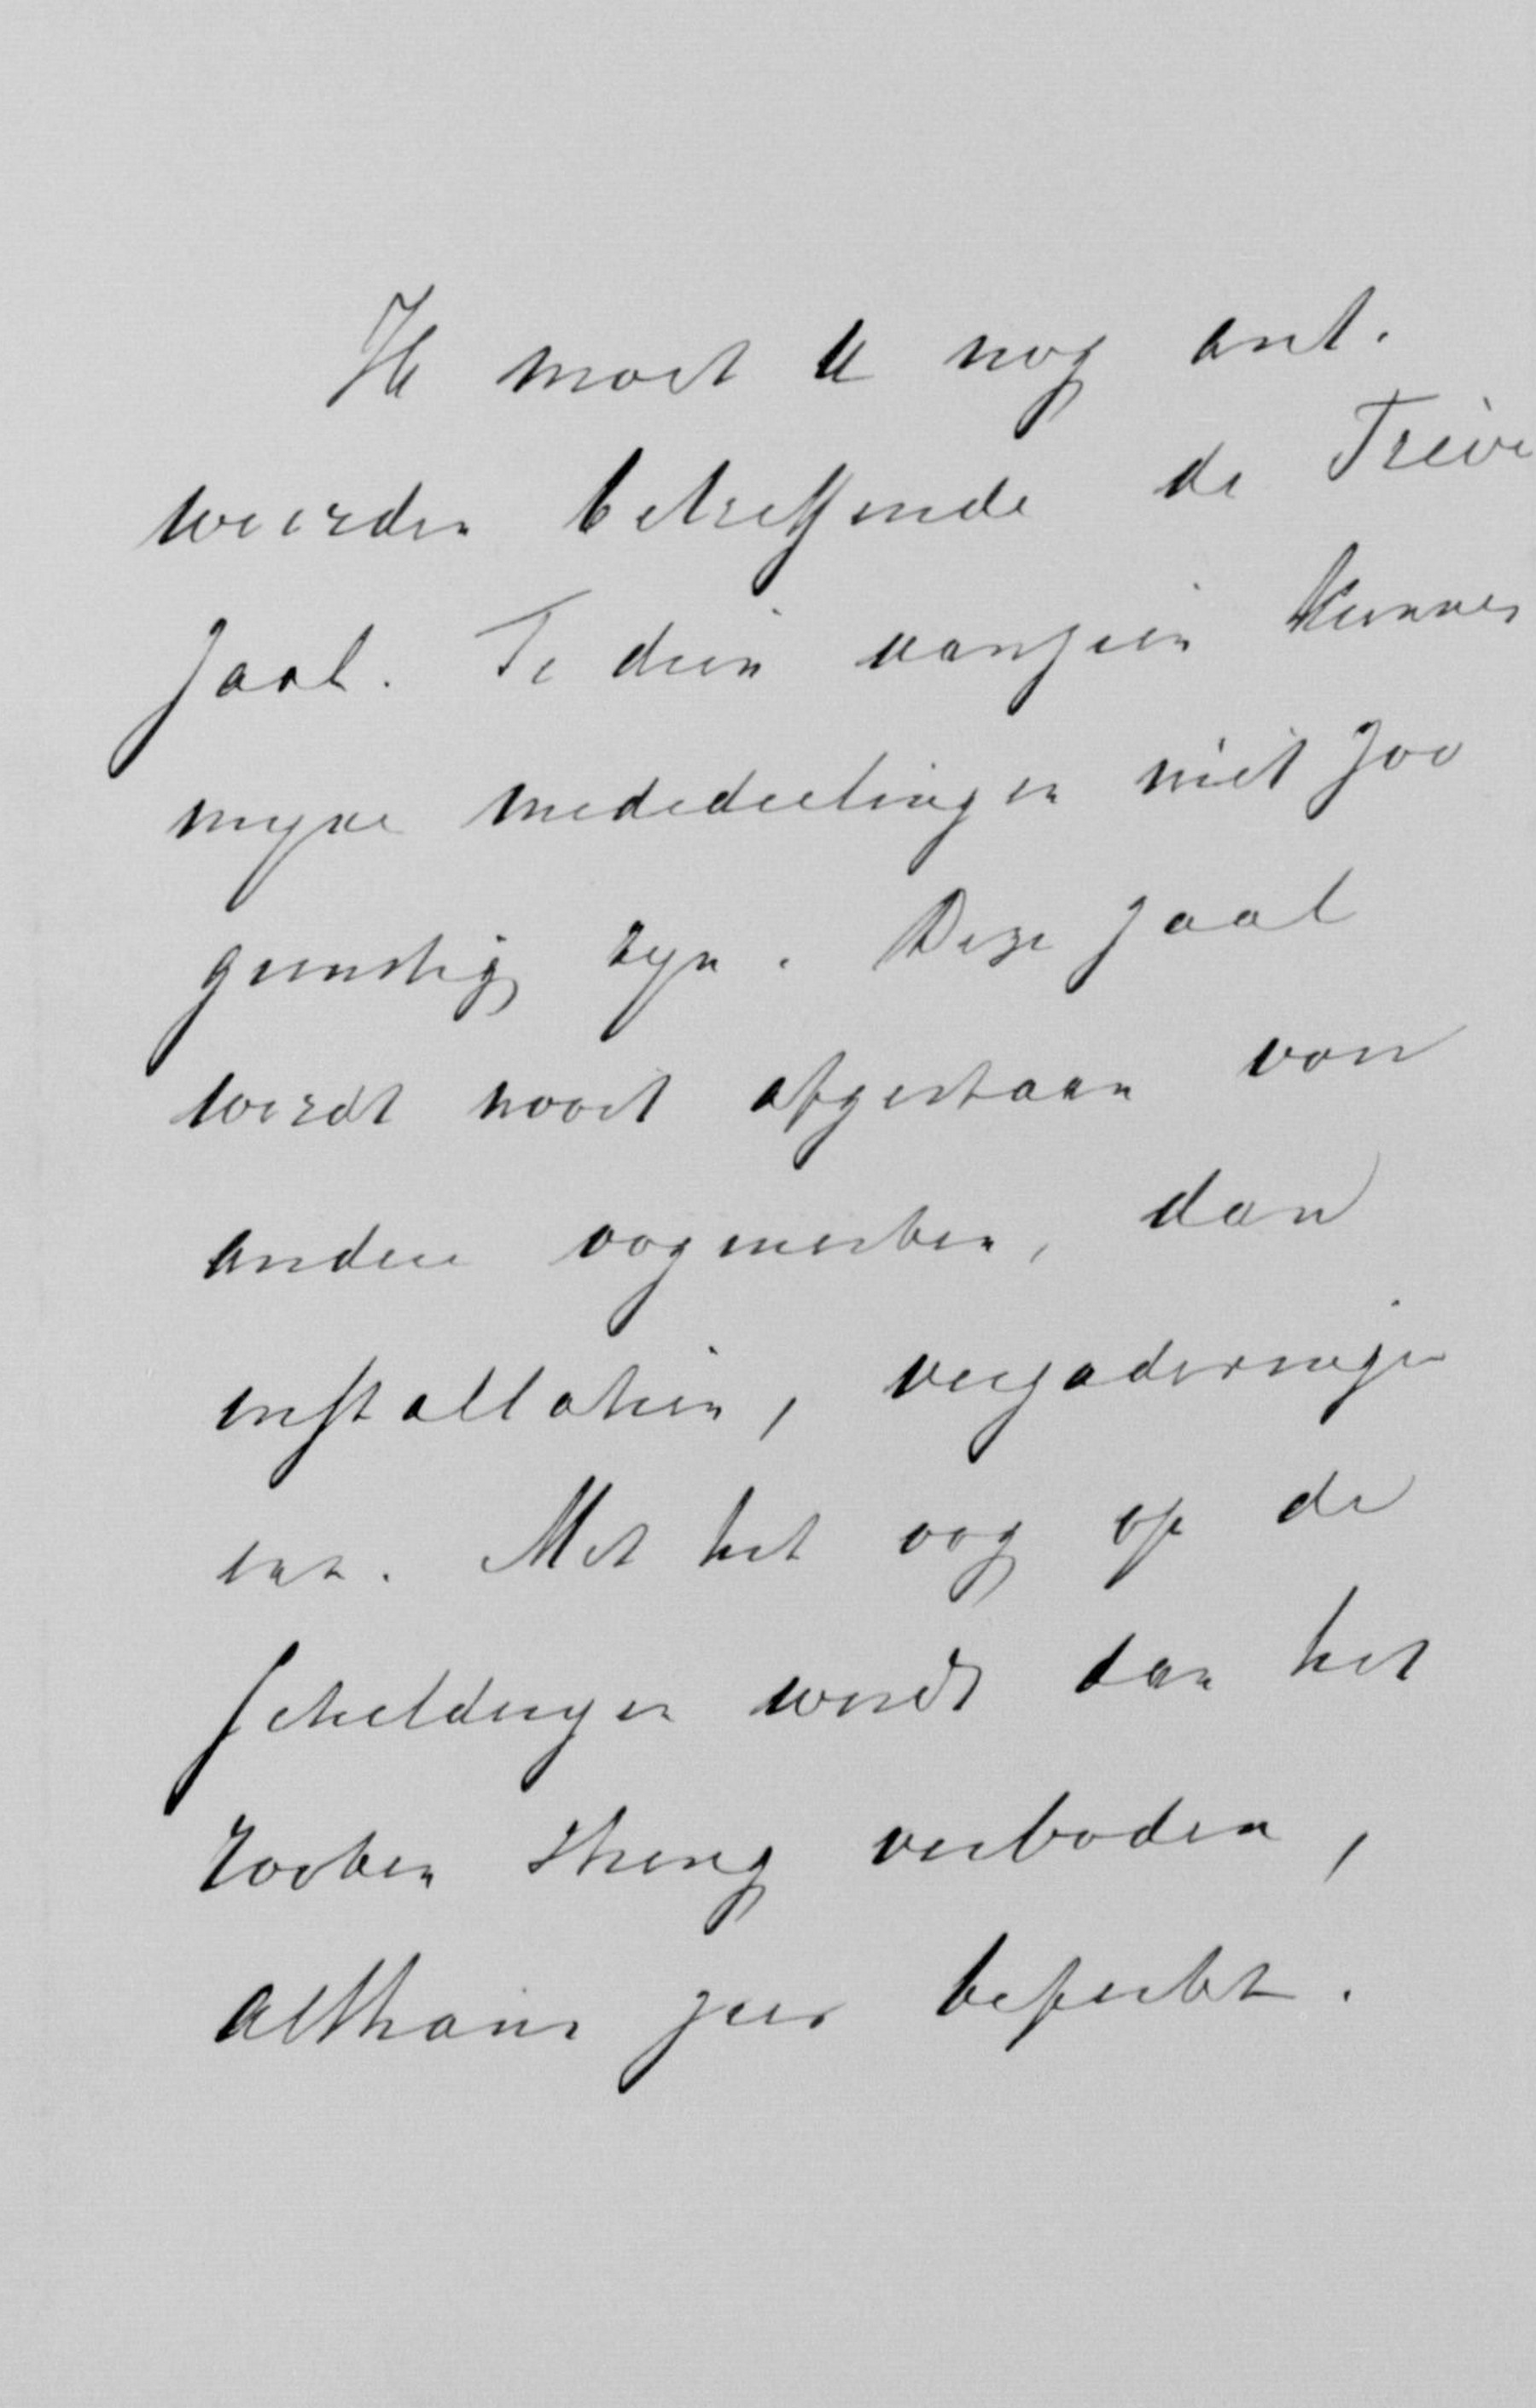 Ik moet U nog ant-
woorden betreffende de Trêve
zaal. Te dien aanzien kunnen
myne mededeelingen niet zoo
gunstig zyn. Deze zaal
wordt nooit afgestaan voor
andere oogmerken, dan
installatien, vergaderingen
enz. Met het oog op de
schilderyen wordt dan het
rooken streng verboden,
althans zeer beperkt.